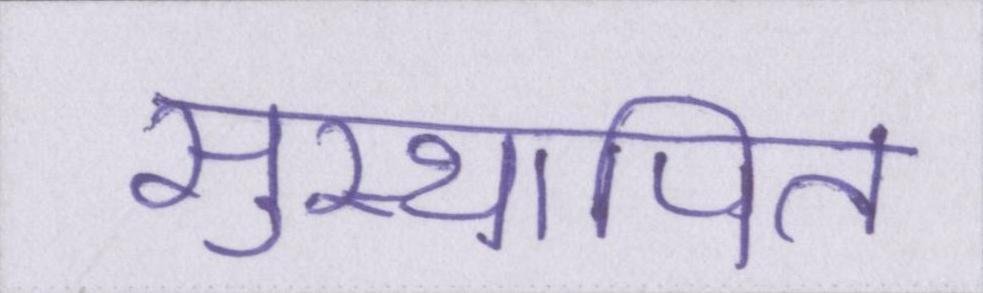 सुस्थापित